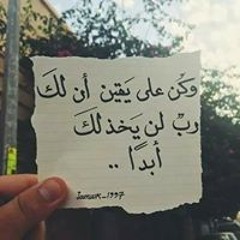 وكُن على يَقين أن لكَ
ربّ لن يَخذلكَ
أبدًا ..